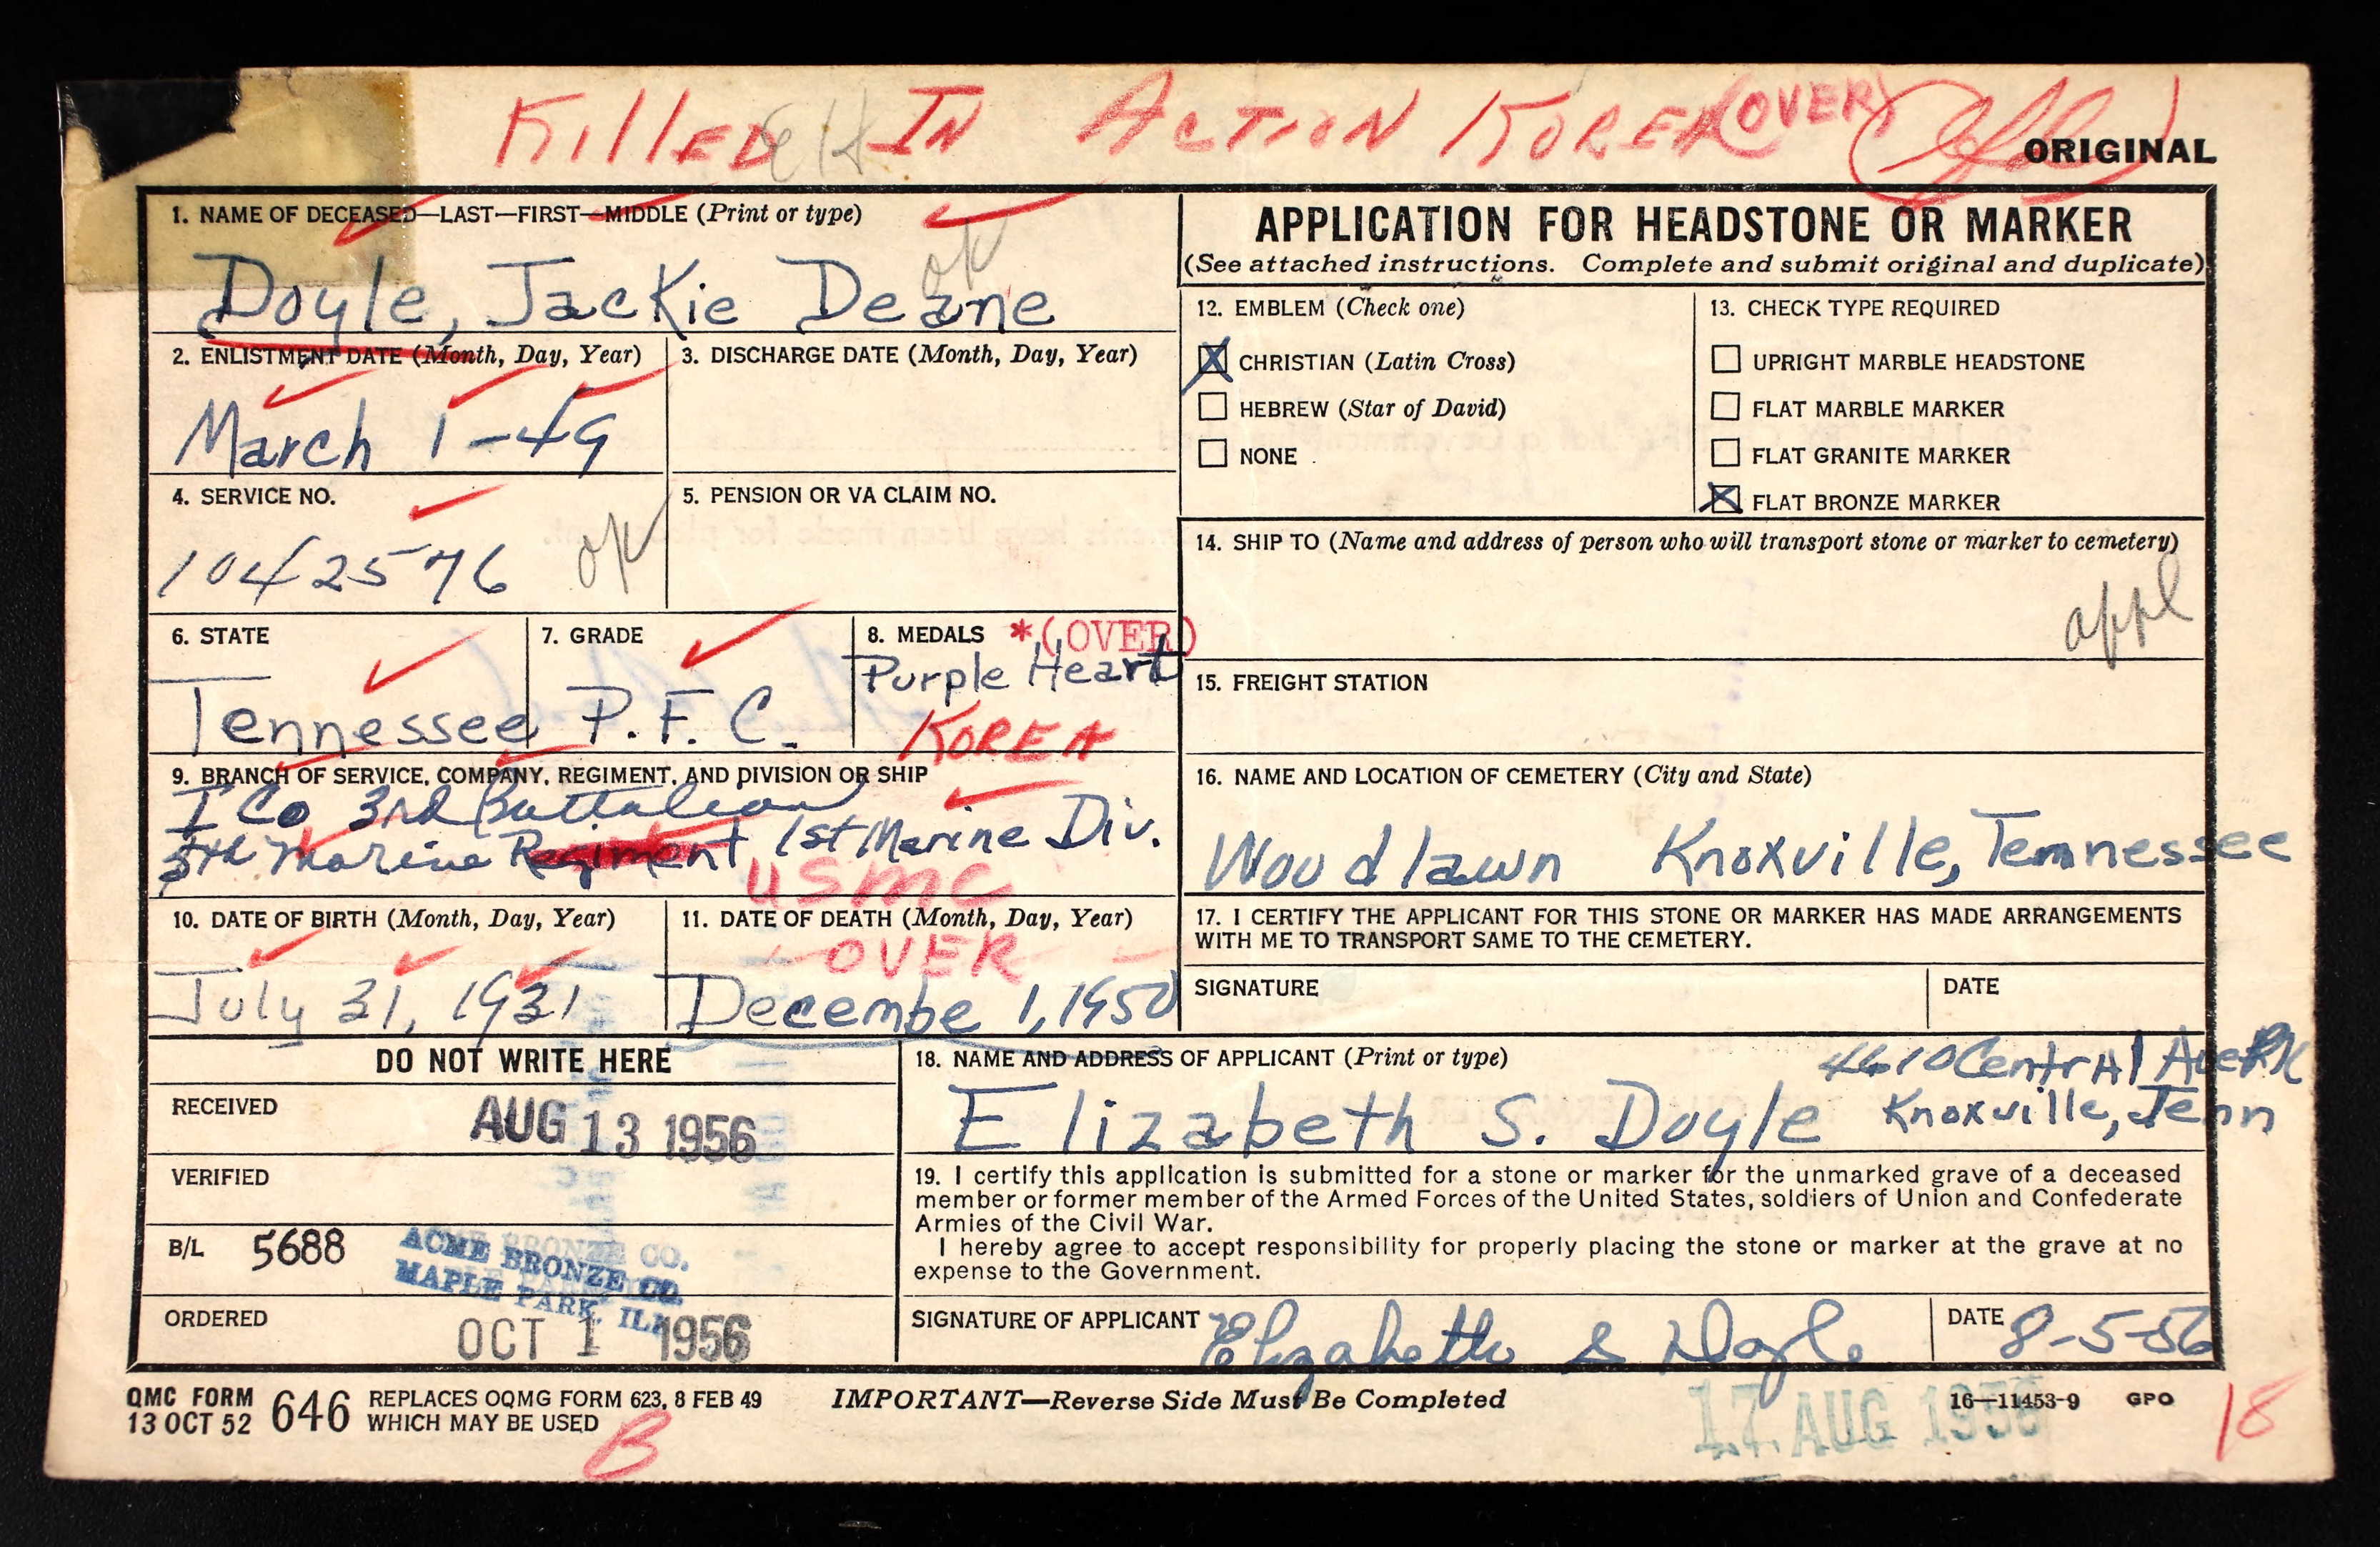 Killed In Action Korea (OVER)
ORIGINAL
1. NAME OF DECEASED—LAST—FIRST—MIDDLE (Print or type)
ok
Doyle, Jackie Deane
2. ENLISTMENT DATE (Month, Day, Year)
March 1-49
3. DISCHARGE DATE (Month, Day, Year)
4. SERVICE NO.
1042576 ok
5. PENSION OR VA CLAIM NO.
6. STATE
Tennessee
7. GRADE
P.F.C.
8. MEDALS *(OVER)
Purple Heart
KOREA
9. BRANCH OF SERVICE, COMPANY, REGIMENT, AND DIVISION OR SHIP
I Co 3rd Battalion
5th Marine Regiment 1st Marine Div.
USMC
10. DATE OF BIRTH (Month, Day, Year)
July 31, 1931
11. DATE OF DEATH (Month, Day, Year)
OVER
Decembe 1, 1950
APPLICATION FOR HEADSTONE OR MARKER
(See attached instructions. Complete and submit original and duplicate)
12. EMBLEM (Check one)
CHRISTIAN (Latin Cross)
HEBREW (Star of David)
NONE
13. CHECK TYPE REQUIRED
UPRIGHT MARBLE HEADSTONE
FLAT MARBLE MARKER
FLAT GRANITE MARKER
FLAT BRONZE MARKER
14. SHIP TO (Name and address of person who will transport stone or marker to cemetery)
appl
15. FREIGHT STATION
16. NAME AND LOCATION OF CEMETERY (City and State)
Woodlawn Knoxville, Tennessee
17. I CERTIFY THE APPLICANT FOR THIS STONE OR MARKER HAS MADE ARRANGEMENTS
WITH ME TO TRANSPORT SAME TO THE CEMETERY.
SIGNATURE
DATE
DO NOT WRITE HERE
RECEIVED AUG 13 1956
VERIFIED
B/L 5688
ACME BRONZE CO.
MAPLE PARK, ILL.
ORDERED OCT 1 1956
18. NAME AND ADDRESS OF APPLICANT (Print or type)
4610 Central Ave Pk
Elizabeth S. Doyle Knoxville, Tenn
19. I certify this application is submitted for a stone or marker for the unmarked grave of a deceased
member or former member of the Armed Forces of the United States, soldiers of Union and Confederate
Armies of the Civil War.
I hereby agree to accept responsibility for properly placing the stone or marker at the grave at no
expense to the Government.
SIGNATURE OF APPLICANT Elizabeth S Doyle
DATE 8-5-56
QMC FORM
13 OCT 52
646
REPLACES OQMG FORM 623, 8 FEB 49
WHICH MAY BE USED
IMPORTANT—Reverse Side Must Be Completed
16—11453-9 GPO
B
17 AUG 1956
18